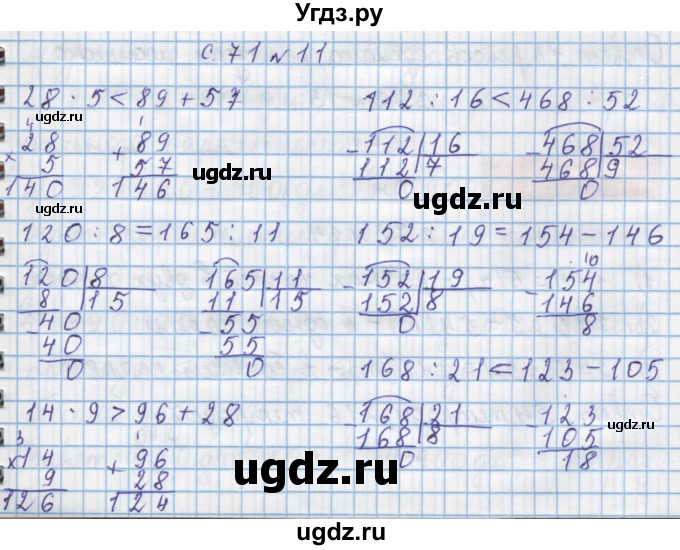 Угдз.ру
с. 71 № 11
28 · 5 < 89 + 57
112 : 16 < 468 : 52
4
28
× 5
140
1
+ 89
57
146
- 112 | 16
112 | 7
0
- 468 | 52
468 | 9
0
ugdz.ru
ugdz.ru
ugdz.ru
ugdz.ru
120 : 8 = 165 : 11
152 : 19 = 154 - 146
120 | 8
8 | 15
- 40
40
0
165 | 11
11 | 15
- 55
55
0
- 152 | 19
152 | 8
0
10
- 154
146
8
ugdz.ru
ugdz.ru
168 : 21 < 123 - 105
14 · 9 > 96 + 28
3
× 14
9
126
1
+ 96
28
124
- 168 | 21
168 | 8
0
- 123
105
18
ugdz.ru
ugdz.ru
ugdz.ru
ugdz.ru